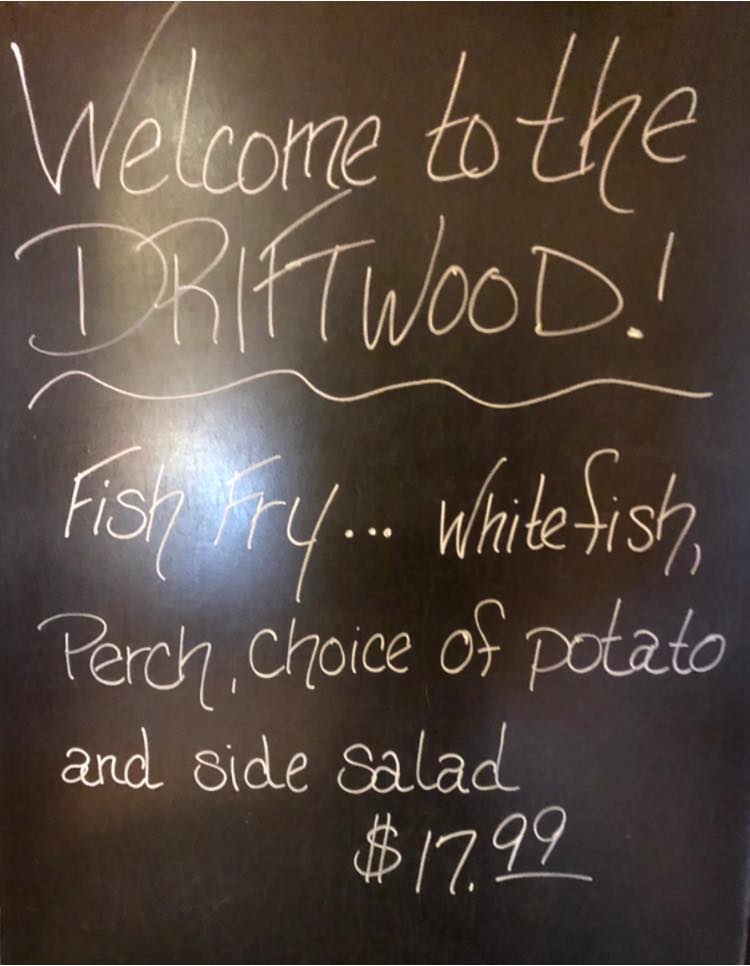 Welcome to the
DRIFTWOOD!
Fish Fry... Whitefish,
Perch, Choice of potato
and side salad
$17.99